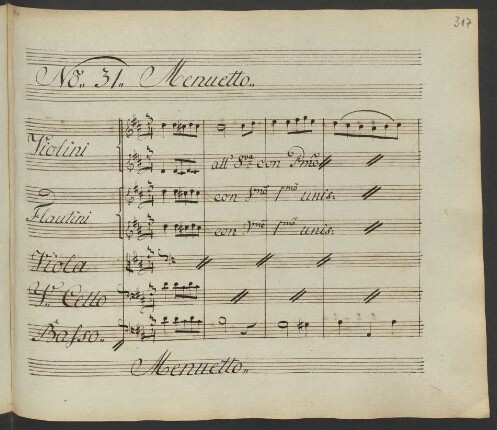 317
No. 31. Menuetto.
Violini
all' 8va con Pmo
Flautini
con Vmo 1mo unis.
con Vmo 1mo unis.
Viola
V. Cello
Basso.
Menuetto.